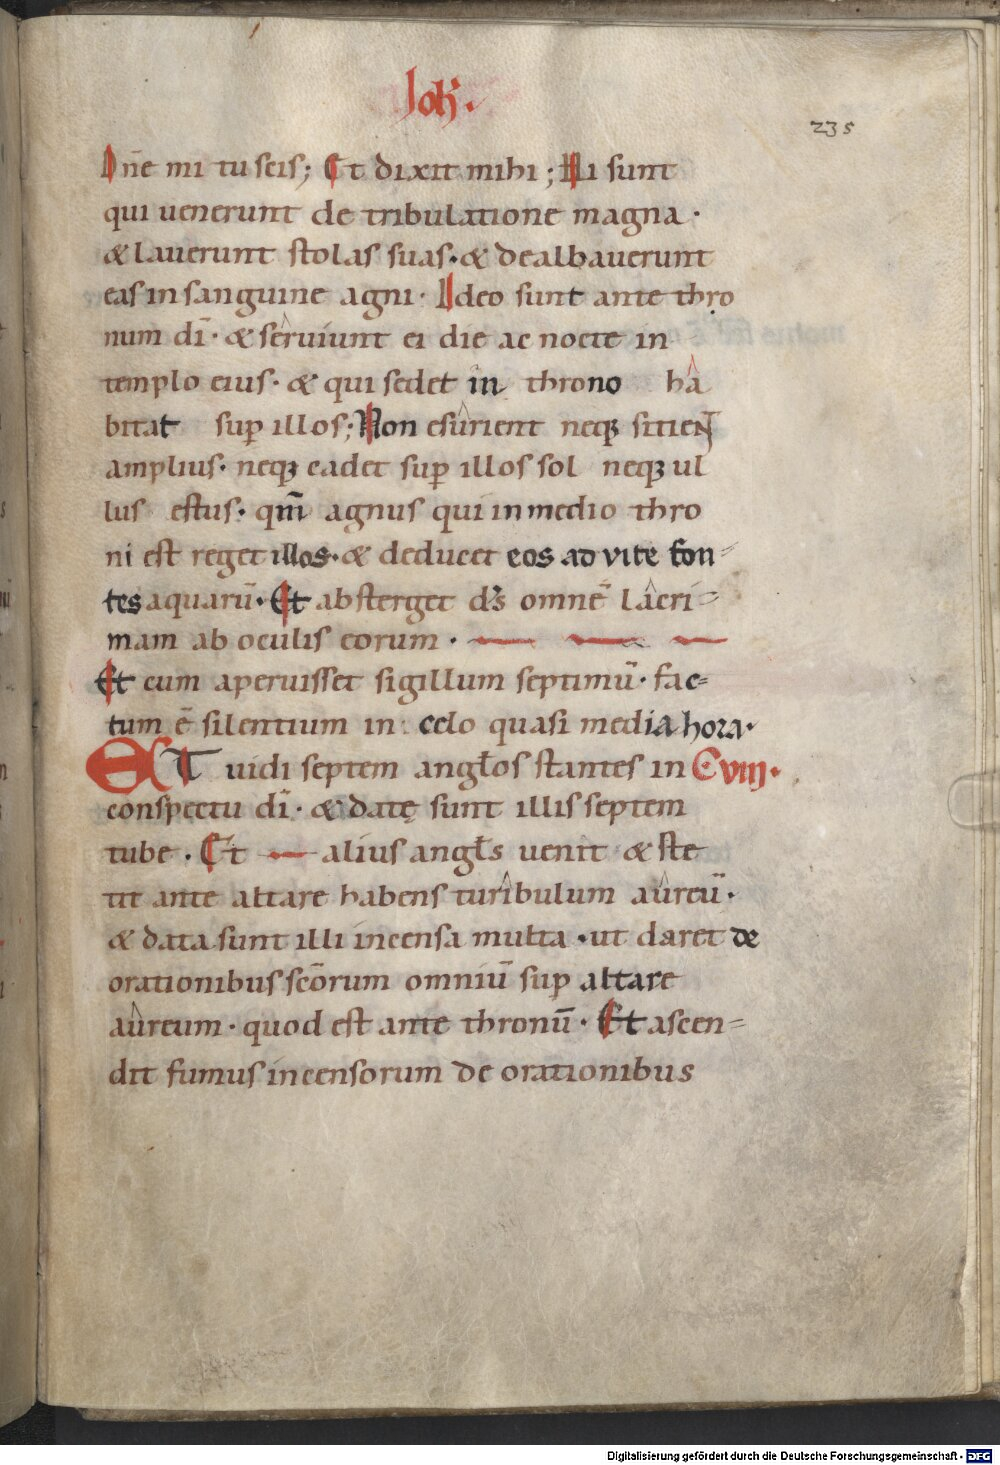 Joh̄.
235
Dn̄e mi tu scis; Et dixit mihi; Hi sunt
qui uenerunt de tribulatione magna.
& lauerunt stolas suas. & dealbauerunt
eas in sanguine agni. Ideo sunt ante thro
num dī. & seruiunt ei die ac nocte in
templo eius. & qui sedet in throno ha
bitat sup̲ illos; Non esurient neq; sitient
amplius. neq; cadet sup̲ illos sol neq; ul
lus estus. qm̄ agnus qui in medio thro
ni est reget illos. & deducet eos ad vite fon-
tes aquarū. Et absterget ds̄ omnē lacri-
mam ab oculis eorum.
Et cum aperuisset sigillum septimū. fac-
tum ē silentium in celo quasi media hora.
ET uidi septem angłos stantes in C VIII.
conspectu dī. & datę sunt illis septem
tube. Et alius angłs uenit & ste
tit ante altare habens turibulum aureū.
& data sunt illi incensa multa. ut daret de
orationibus scōrum omniū sup̲ altare
aureum. quod est ante thronū. Et ascen-
dit fumus incensorum de orationibus
Digitalisierung gefördert durch die Deutsche Forschungsgemeinschaft - DFG